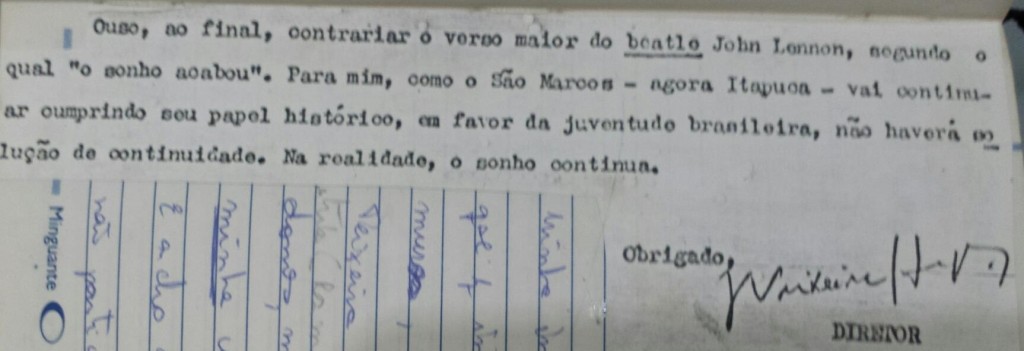 Ouso, ao final, contrariar o verso maior do beatle John Lennon, segundo o
qual "o sonho acabou". Para mim, como o São Marcos - agora Itapuca - vai continu-
ar cumprindo seu papel histórico, em favor da juventude brasileira, não haverá so
lução de continuidade. Na realidade, o sonho continua.
Obrigado,
DIRETOR
Minguante
não
E acho
minha
domos,
Teixeira
minha